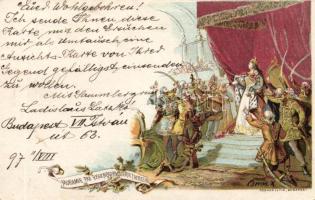 Euer Wohlgeboren!
Ich sende Ihnen diese
Karte mit dem Ersuchen
mir als Umtausch eine
Ansichts-Karte von Ihrer
Gegend gefälligst einsenden
zu wollen.
Mit Sammlergruß
Ladislaus
Budapest VII István
út 63.
97